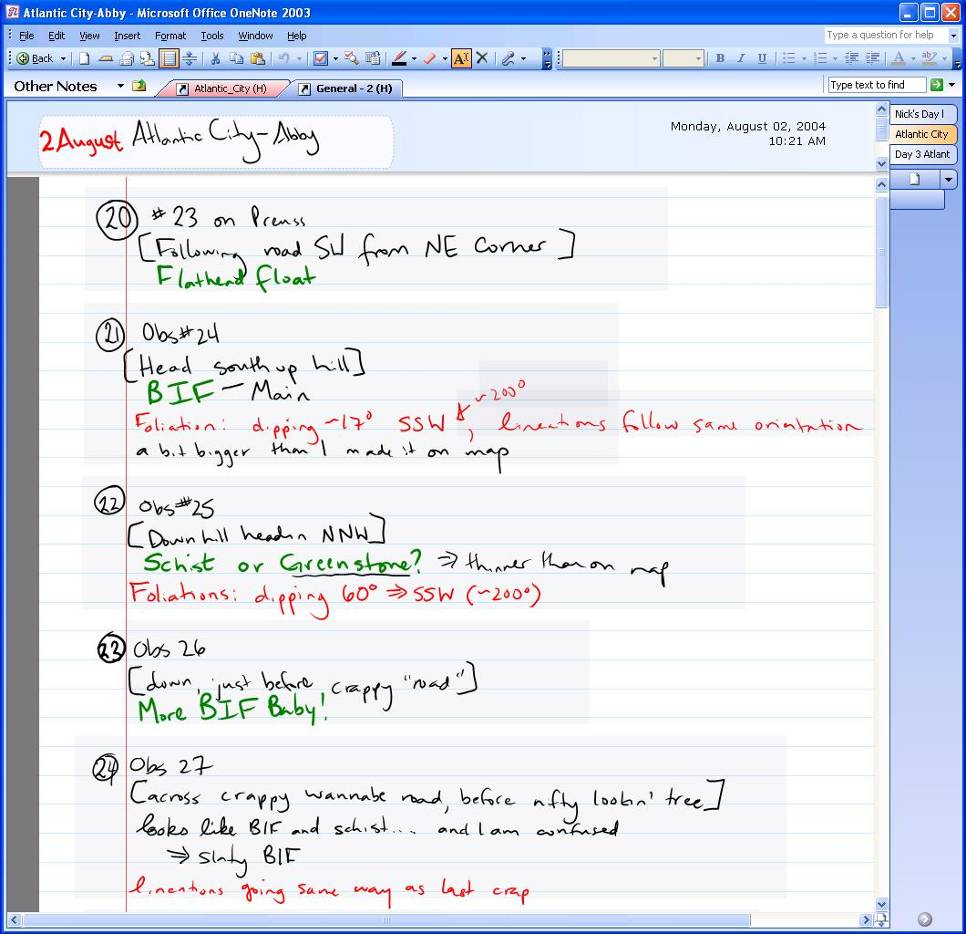 Atlantic City-Abby - Microsoft Office OneNote 2003
File Edit View Insert Format Tools Window Help
Type a question for help
Back
B I U
Other Notes
Atlantic_City (H)
General - 2 (H)
Type text to find
2 August Atlantic City-Abby
Monday, August 02, 2004
10:21 AM
Nick's Day I
Atlantic City
Day 3 Atlant
20 #23 on Preuss
[Following road SW from NE Corner]
Flathead float
21 Obs#24
[Head south up hill]
BIF - Main
~200°
Foliation: dipping ~17° SSW, lineations follow same orientation
a bit bigger than I made it on map
22 Obs#25
[Down hill headin NNW]
Schist or Greenstone? ⇒ thinner than on map
Foliations: dipping 60° ⇒ SSW (~200°)
23 Obs 26
[down, just before crappy "road"]
More BIF Baby!
24 Obs 27
[across crappy wannabe road, before nfty lookin' tree]
looks like BIF and schist... and I am confused
⇒ slaty BIF
linentions going same way as last crap